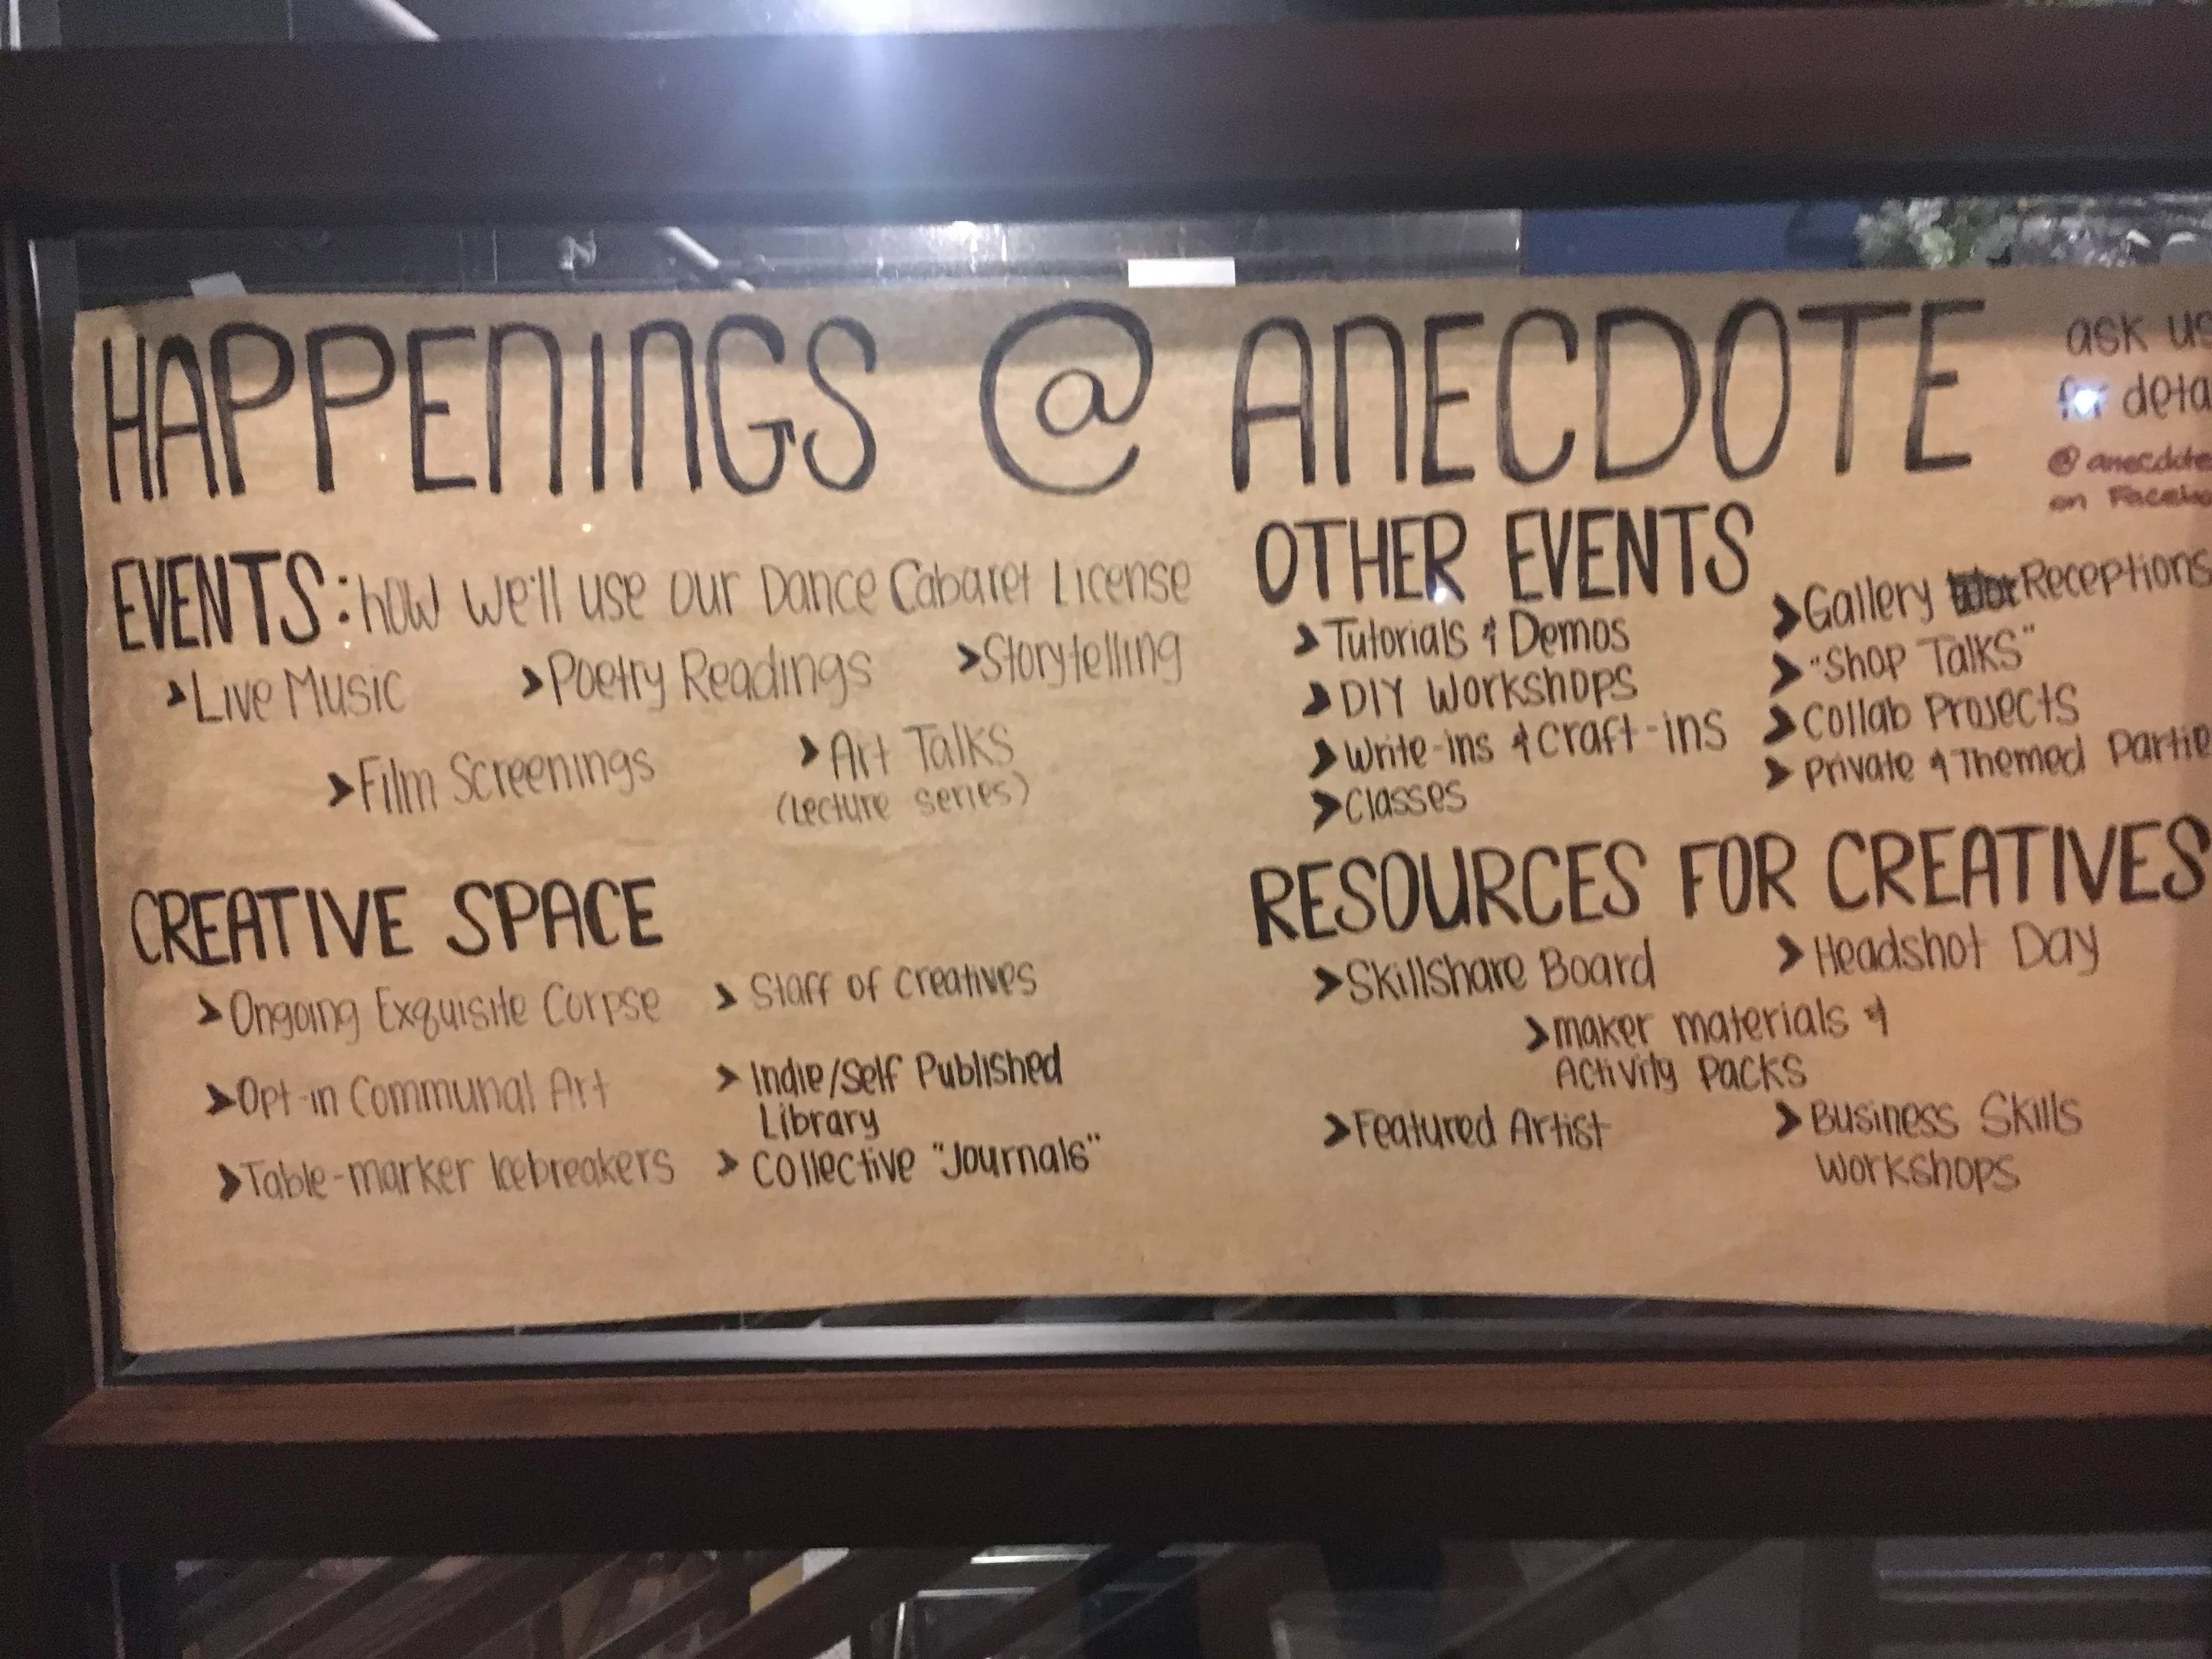 HAPPENINGS @ ANECDOTE
ask us
for deta
@anecdote
on Facebo
EVENTS: how we'll use our Dance Cabaret License
➤Live Music ➤Poetry Readings ➤Storytelling
➤Film Screenings ➤Art Talks
(lecture series)
OTHER EVENTS
➤Tutorials & Demos
➤DIY Workshops
➤Write-ins & Craft-ins
➤Classes
➤Gallery Receptions
➤"Shop Talks"
➤Collab Projects
➤Private & Themed Partie
CREATIVE SPACE
➤Ongoing Exquisite Corpse
➤Opt-in Communal Art
➤Table-marker Icebreakers
➤Staff of Creatives
➤Indie/Self Published
Library
➤Collective "Journals"
RESOURCES FOR CREATIVES
➤Skillshare Board ➤Headshot Day
➤maker materials &
Activity Packs
➤Featured Artist ➤Business Skills
Workshops